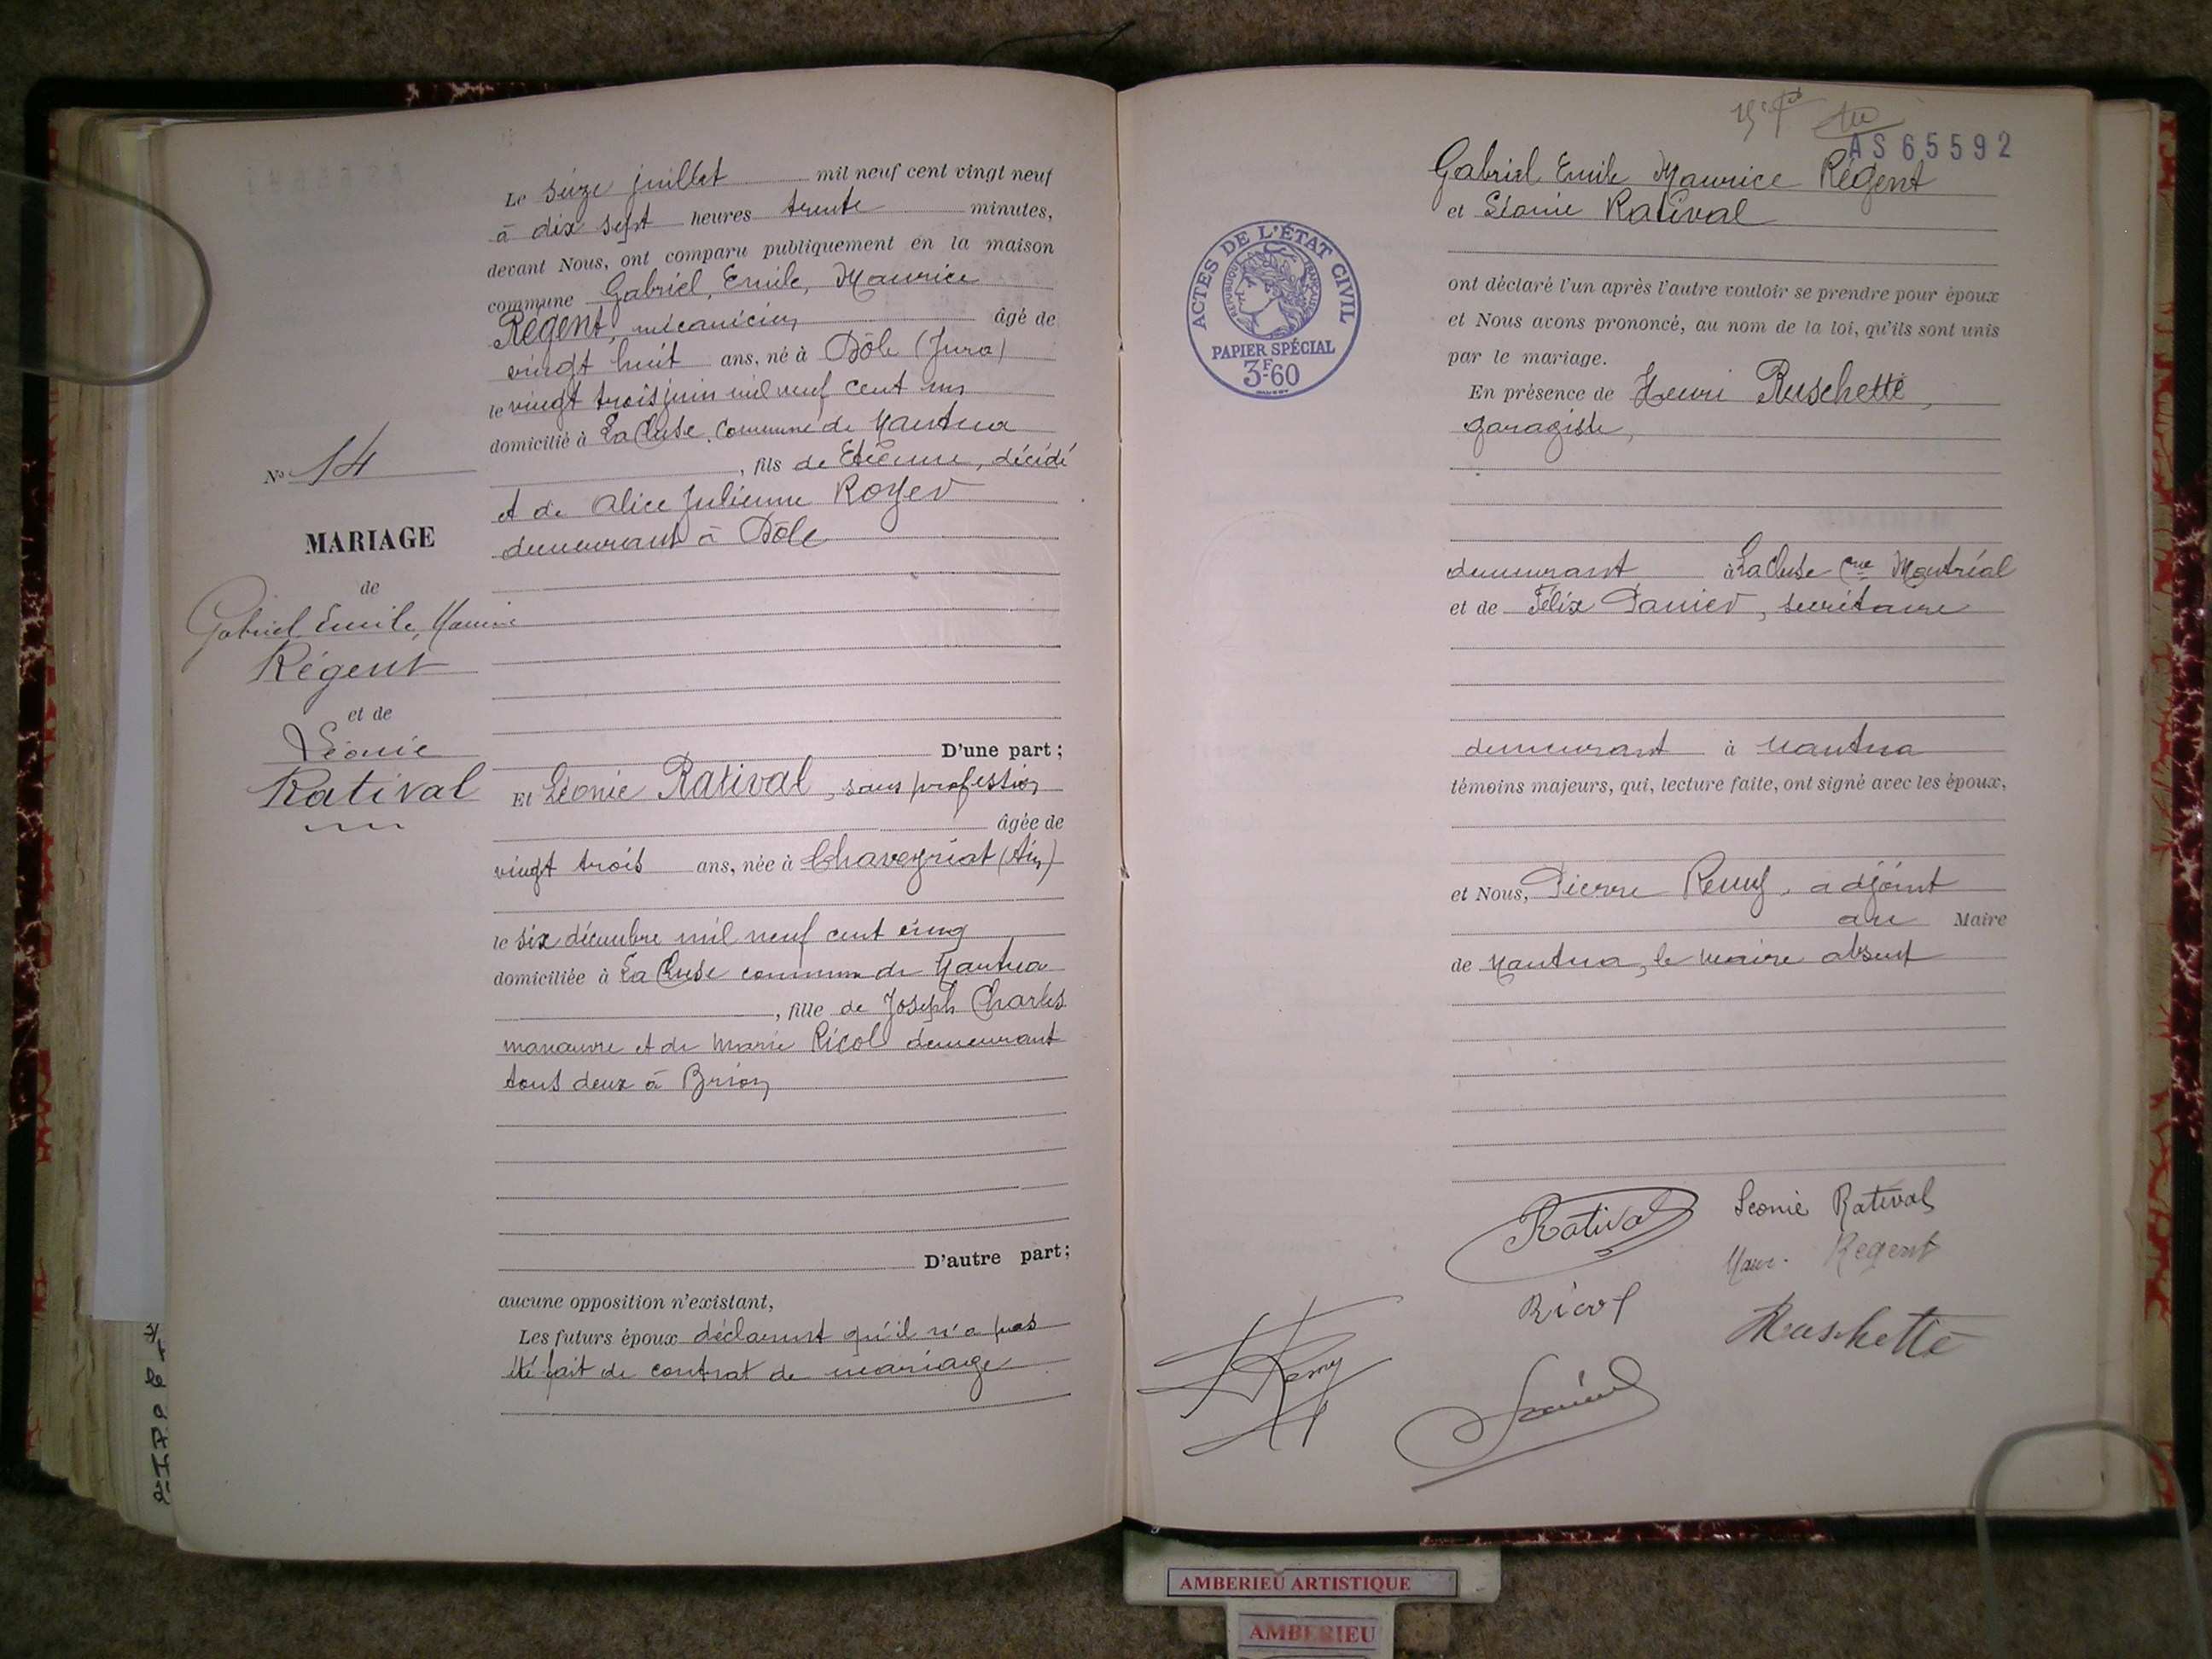 Le seize juillet mil neuf cent vingt neuf
à dix sept heures trente minutes,
devant Nous, ont comparu publiquement en la maison
commune Gabriel, Emile, Maurice
Régent, mécanicien âgé de
vingt huit ans, né à Dôle (Jura)
le vingt trois juin mil neuf cent un
domicilié à La Cluse, commune de Nantua
, fils de Etienne, décédé
et de Alice Julienne Royer
demeurant à Dôle
D'une part ;
Et Léonie Ratival, sans profession
âgée de
vingt trois ans, née à Chaveyriat (Ain)
le six décembre mil neuf cent cinq
domiciliée à La Cluse commune de Nantua
, fille de Joseph Charles
manœuvre et de Marie Ricol demeurant
tous deux à Brion
D'autre part ;
aucune opposition n'existant,
Les futurs époux déclarent qu'il n'a pas
été fait de contrat de mariage
No 14
MARIAGE
de
Gabriel Emile, Maurice
Régent
et de
Léonie
Ratival
AS65592
Gabriel Emile Maurice Régent
et Léonie Ratival
ACTES DE L'ÉTAT CIVIL
RÉPUBLIQUE FRANÇAISE
PAPIER SPÉCIAL
3F.60
ont déclaré l'un après l'autre vouloir se prendre pour époux
et Nous avons prononcé, au nom de la loi, qu'ils sont unis
par le mariage.
En présence de Henri Ruschette,
garagiste,
demeurant à La Cluse cne Montréal
et de Félix Panier, secrétaire
demeurant à Nantua
témoins majeurs, qui, lecture faite, ont signé avec les époux,
et Nous, Pierre Remy, adjoint
au Maire
de Nantua, le maire absent
Ratival
Leonie Ratival
Maur. Regent
Ricol
Ruschette
Remy
AMBERIEU ARTISTIQUE
AMBERIEU